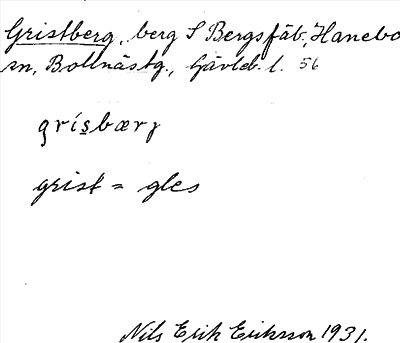 Gristberg, berg S Bergsfäb., Hanebo
sn, Bollnästg., Gävleb. l. 56
grísbærj
grist = gles
Nils Erik Eriksson 1931.